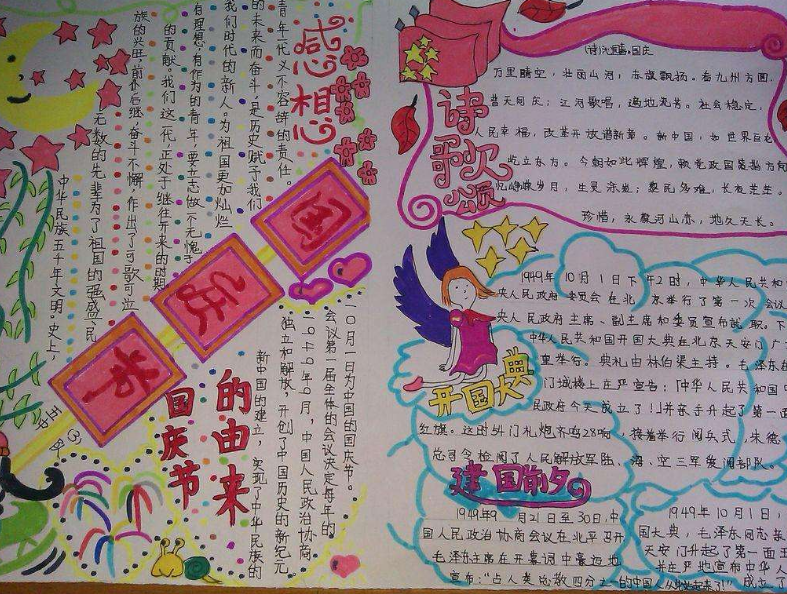 感想
中华民族五千年文明史上，
无数的先辈为了祖国的强盛、民
族的兴旺，前仆后继，奋斗不懈，作出了可歌可泣
的贡献。我们这一代，正处于继往开来的时期
有理想，有作为的青年，要立志做一个无愧于
我们时代的新人。为祖国更加灿烂
的未来而奋斗，是历史赋予我们
青年一代义不容辞的责任。
国
庆
节
国庆节
的由来
一〇月一日为中国的国庆节。
会议第一届全体的会议决定每年的
一九四九年九月，中国人民政治协商
独立和解放，开创了中国历史的新纪元
新中国的建立，实现了中华民族的
诗歌颂
万里晴空，壮丽山河，赤旗飘扬。看九州方圆，
普天同庆；江河歌唱，遍地流芳。社会稳定，
人民幸福，改革开放谱新章。新中国，如世界巨
屹立东方。今朝如此辉煌，
峥嵘岁月，生灵涂炭；黎民多难，长夜茫茫。
珍惜，永葆河山赤，地久天长。
开国大典
1949年10月1日下午2时，中华人民共和
央人民政府委员会在北京举行了第一次会议
央人民政府主席、副主席和委员宣布就职。下
中华人民共和国开国大典在北京天安门广
重举行。典礼由林伯渠主持。毛泽东在
门城楼上庄严宣告：「中华人民共和国
民政府今天成立了！」并亲手升起了第一面
红旗。这时，礼炮齐鸣28响，接着举行阅兵式，朱德
总司令检阅了人民解放军陆、海、空三军受阅部队。
建国前夕
1949年9月21日至30日，中
国人民政治协商会议在北平召开
毛泽东主席在开幕词中豪迈地
宣布：“占人类总数四分之一的中国人从此站起来了！”
1949年10月1日，
国大典，毛泽东同志亲
天安门升起了第一面五
并庄严地宣布中华人
成立了